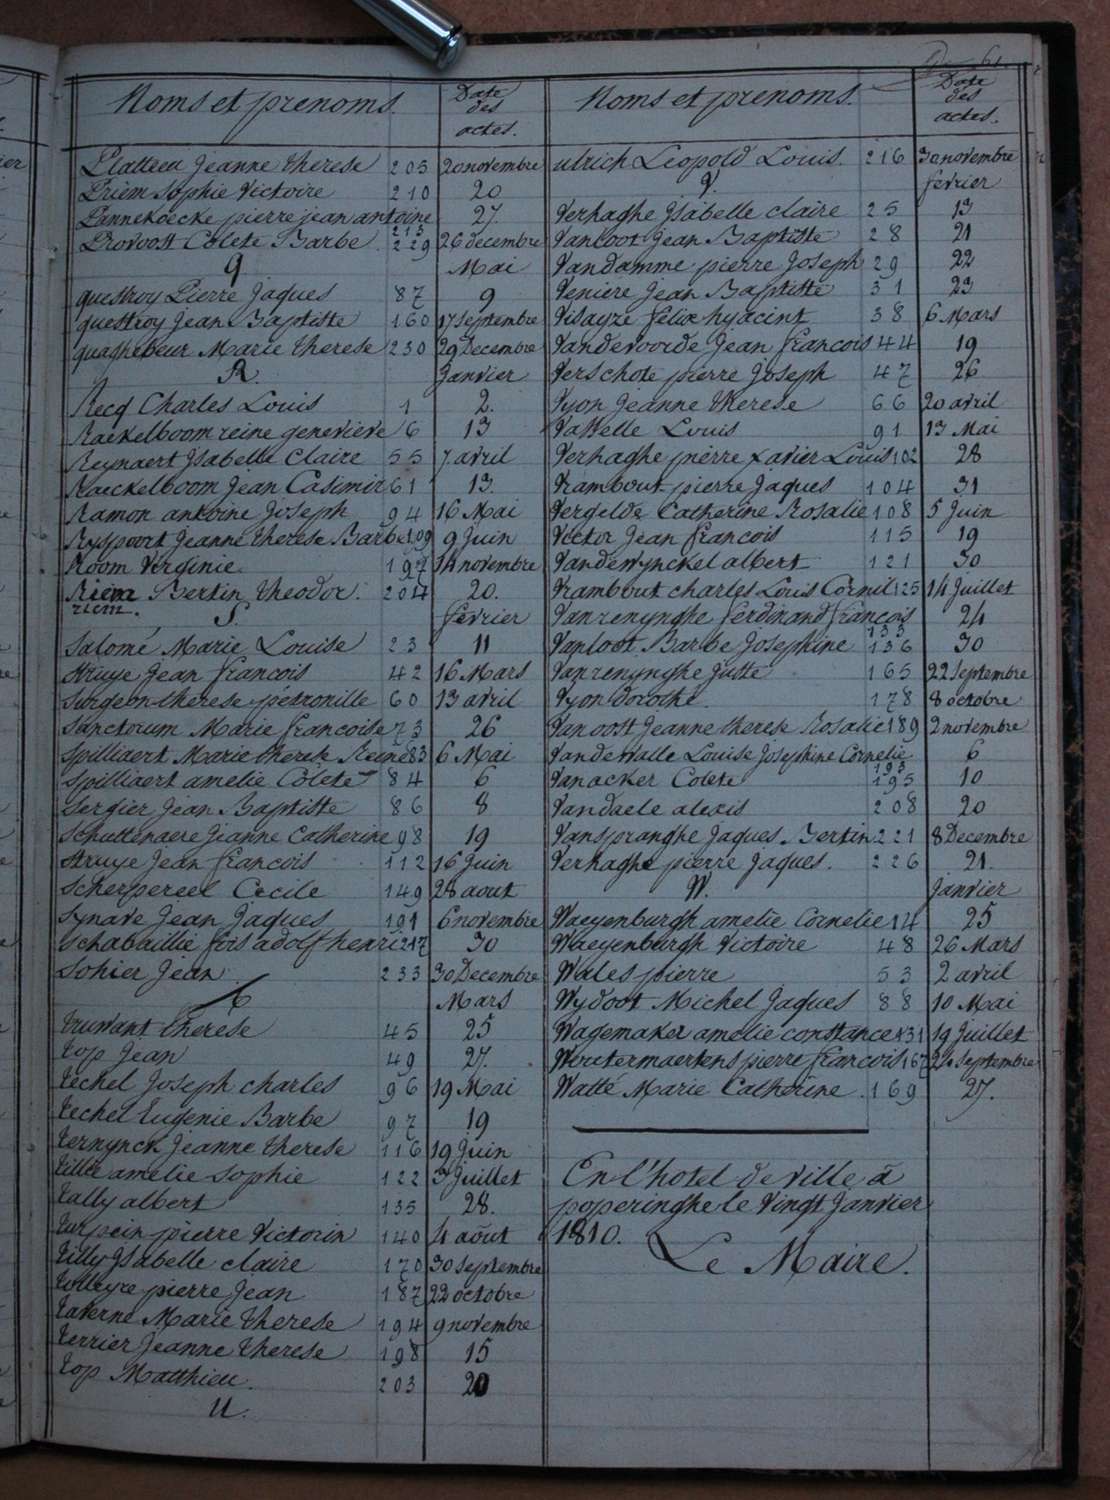 61
Noms et prenoms.
Date des actes.
Platteeu Jeanne therese 205 20 novembre
Priem Sophie Victoire 210 20
Pannekoecke pierre jean antoine 213 27
Provoost Colete Barbe 229 26 decembre
q Mai
questroy Pierre Jaques 87 9
questroy Jean Baptiste 160 17 Septembre
quaghebeur Marie therese 230 29 Decembre
R. Janvier
Recq Charles Louis 1 2.
Raekelboom reine genevieve 6 13
Reynaert Isabelle Claire 55 7 avril
Raeckelboom Jean Casimir 61 13.
Ramon antoine Joseph 94 16 Mai
Ryspoort Jeanne therese Barbe 109 9 Juin
Room Virginie 197 14 novembre
Riem Bertin theodor. 204 20.
riem.
S. fevrier
Salomé Marie Louise 23 11
Struye Jean francois 42 16 Mars
Surgeon therese pétronille 60 13 avril
Sanctorum Marie francoise 73 26
Spilliaert Marie therese Reine 83 6 Mai
Spilliaert amelie Colete 84 6
Sergier Jean Baptiste 86 8
Schuttenaere Jeanne Catherine 98 19
Struye Jean francois 112 16 Juin
Scherpereel Cecile 149 28 aout
Synave Jean Jaques 191 6 novembre
Schabaillie fois adolf henri 217 30
Sohier Jean 233 30 Decembre
t Mars
truwant therese 45 25
top Jean 49 27.
techel Joseph charles 96 19 Mai
techel Eugenie Barbe 97 19
ternynck Jeanne therese 116 19 Juin
tillie amelie Sophie 122 3 Juillet
tally albert 135 28.
turpein pierre Victorin 140 4 août
tilly Isabelle claire 170 30 Septembre
tolleyre pierre Jean 187 22 octobre
taverne Marie therese 194 9 novembre
terrier Jeanne therese 198 15
top Matthieu. 203 20
U.
Noms et prenoms.
Date des actes.
ulrich Leopold Louis. 216 30 novembre
V. fevrier
Verhaghe Isabelle claire 25 13
Vanloot Jean Baptiste 28 21
Vandamme pierre Joseph 29 22
Veniere Jean Baptiste 31 23
Visayze felix hyacint 38 6 Mars
Vandevoorde Jean francois 44 19
Verschote pierre Joseph 47 26
Vyon Jeanne therese 66 20 avril
Vaselle Louis 91 13 Mai
Verhaghe pierre xavier Louis 102 28
Vrambout pierre Jaques 104 31
Vergelde Catherine Rosalie 108 5 Juin
Victor Jean francois 115 19
Vandewynckel albert 121 30
Vrambout charles Louis Cornil 125 14 Juillet
Vanrenynghe ferdinand francois 133 24
Vanloot Barbe Josephine 136 30
Vanrenynghe Juste 165 22 Septembre
Vyon dorothé. 178 8 octobre
Vanoost Jeanne therese Rosalie 189 2 novembre
Vandewalle Louise Josephine Cornelie 193 6
Vanacker Colete 195 10
Vandaele alexis 208 20
Vanspranghe Jaques Bertin 221 8 Decembre
Verhaghe pierre Jaques. 226 21
W. Janvier
Waeyenburgh amelie Cornelie 14 25
Waeyenburgh Victoire 48 26 Mars
Wales pierre 53 2 avril
Wydoot Michel Jaques 88 10 Mai
Wagemaker amelie constance 131 19 Juillet
Woutermaertens pierre francois 167 24 Septembre
Watté Marie Catherine. 169 27.
En l'hotel de ville à
poperinghe le Vingt Janvier
1810.
Le Maire.